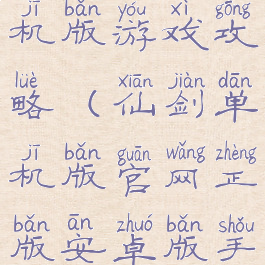 jī bǎn yóu xì gōng
机版游戏攻
lüè xiān jiàn dān
略(仙剑单
jī bǎn guān wǎng zhèng
机版官网正
bǎn ān zhuó bǎn shǒu
版安卓版手